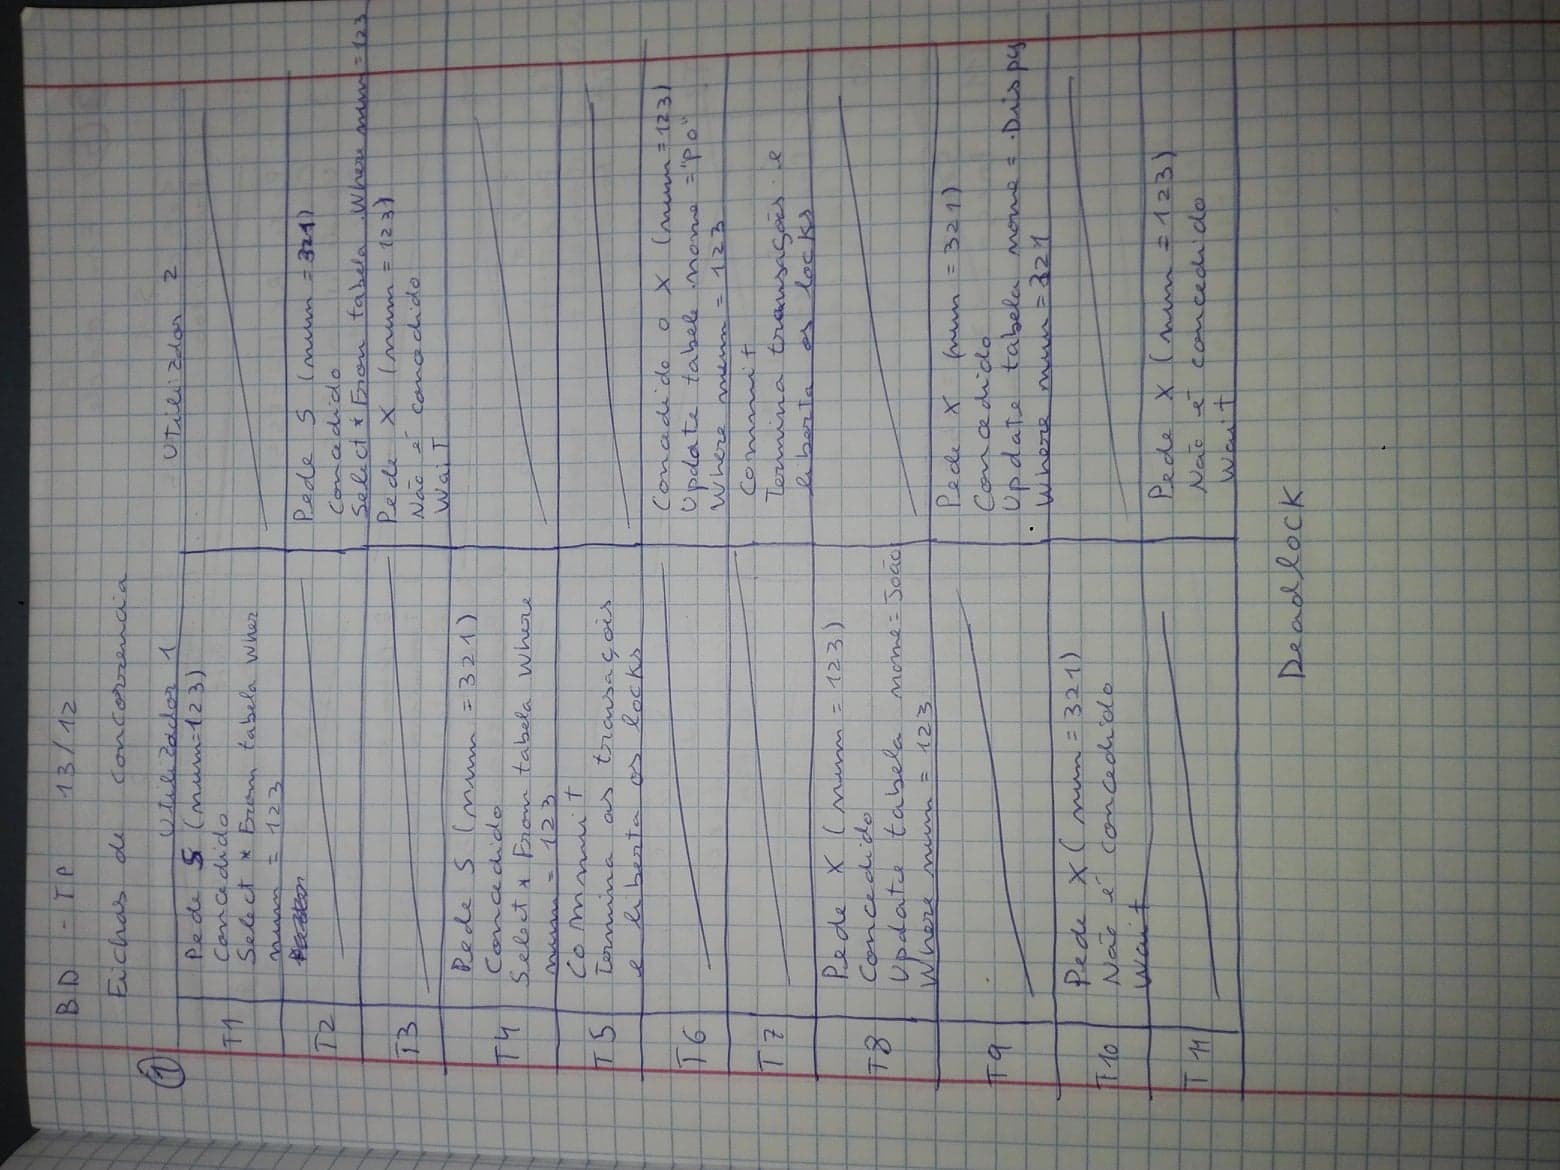 BD - TP 13/12
Fichas de concorrencia
①
Utilizador 1 Utilizador 2
T1
Pede S (num=123)
Concedido
Select * From tabela Wher
num = 123
T2
Pede S (num = 321)
Concedido
Select * From tabela Where num = 123
T3
Pede X (num = 123)
Não é concedido
Wait
T4
Pede S (num = 321)
Concedido
Select * From tabela Where
num = 123
T5
Commit
Termina as transaçois
e liberta os locks
T6
Concedido o X (num = 123)
Update tabele nome = "po"
Where num = 123
T7
Commit
Termina transações e
liberta os locks
T8
Pede X (num = 123)
Concedido
Update tabela nome = João
Where num = 123
T9
Pede X (num = 321)
Concedido
Update tabela nome =
Where num = 321
T10
Pede X (num = 321)
Não é concedido
Wait
T11
Pede X (num = 123)
Não é concedido
Wait
Deadlock